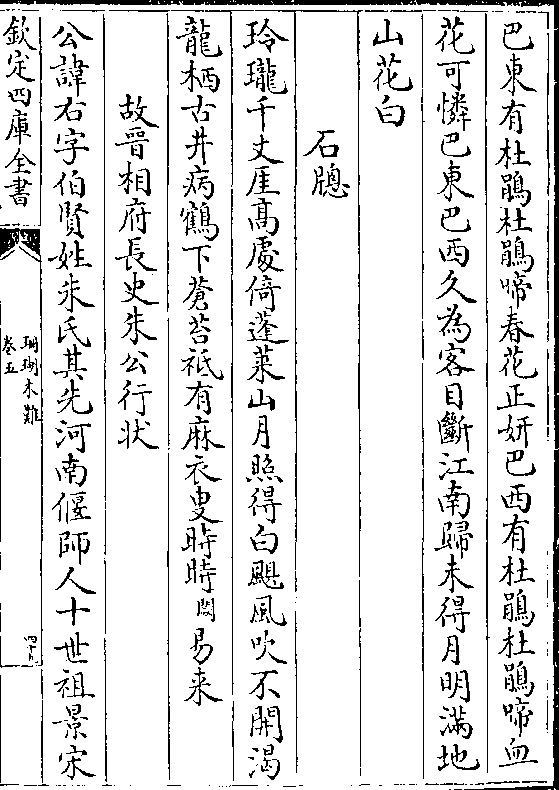 巴東有杜鵑杜鵑啼春花正妍巴西有杜鵑杜鵑啼血
花可憐巴東巴西久為客目斷江南歸未得月明滿地
山花白
石牕
玲瓏千丈厓髙處倚蓬萊山月照得白颶風吹不開渴
龍栖古井病鶴下蒼苔祗有麻衣叟時時閲易来
故晉相府長史朱公行状
公諱右字伯賢姓朱氏其先河南偃師人十世祖景宋
欽定四庫全書
珊瑚木難
卷五